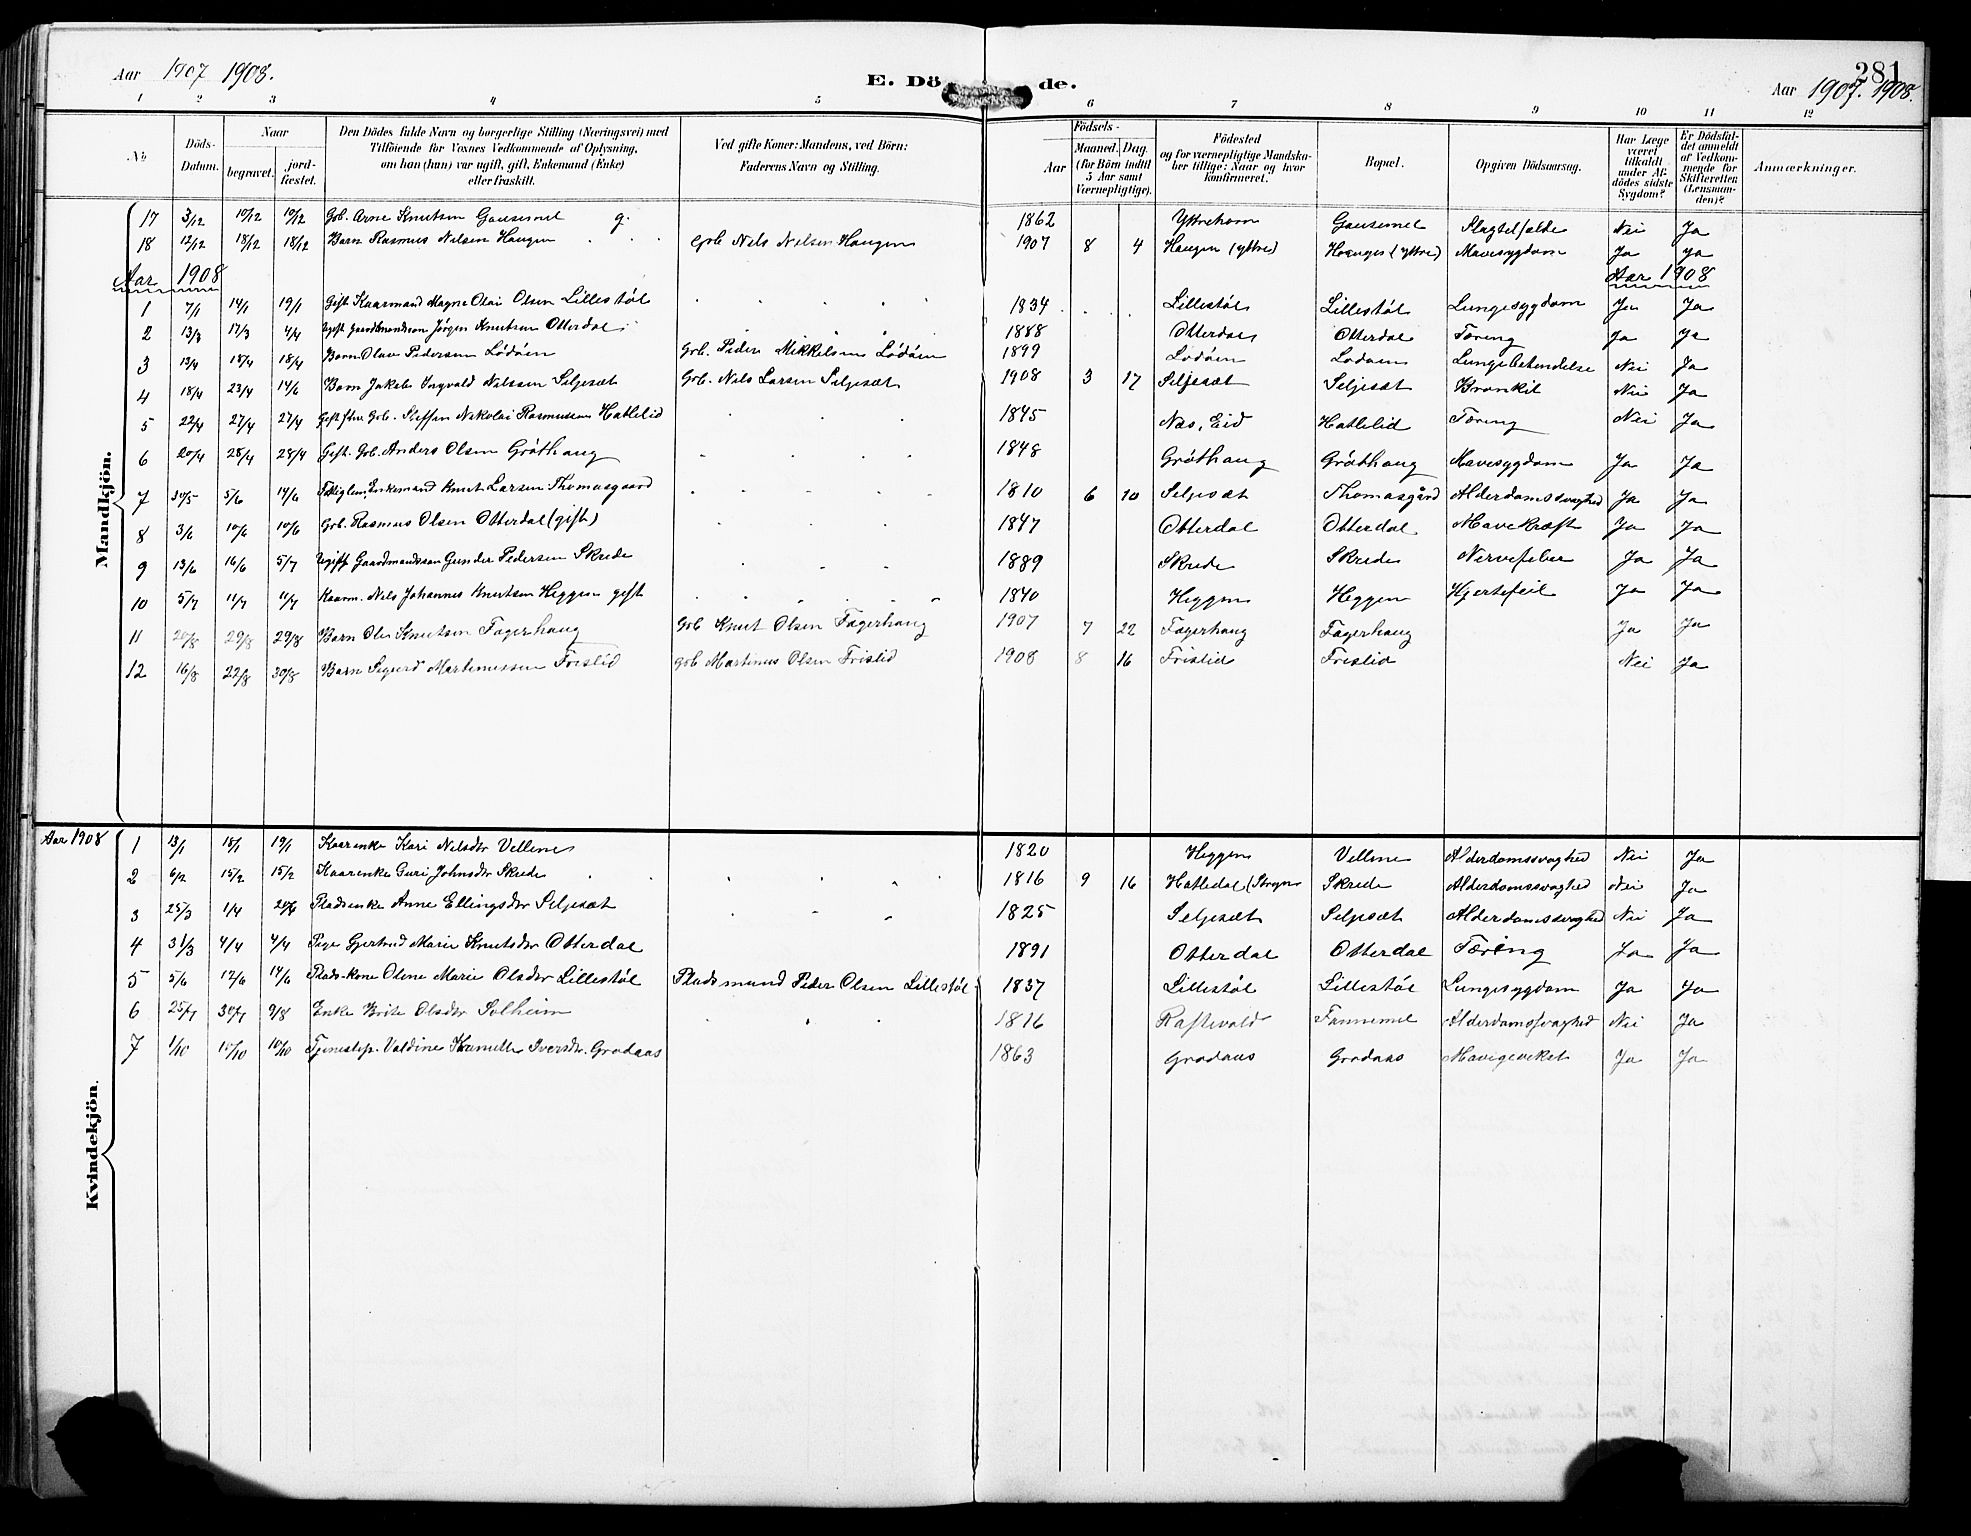 Aar 1907 1908.
E. Dö de.
281
Aar 1907. 1908.
1 2 3 4 5 6 7 8 9 10 11 12
No
Döds-Datum.
Naar
begravet.
jord-fæstet.
Den Dödes fulde Navn og borgerlige Stilling (Næringsvei) med
Tilföiende for Voxnes Vedkommende af Oplysning,
om han (hun) var ugift, gift, Enkemand (Enke)
eller fraskilt.
Ved gifte Koner: Mandens, ved Börn:
Faderens Navn og Stilling.
Födsels-
Aar
Maaned. Dag.
(for Börn indtil
5 Aar samt
Værnepligtige).
Födested
og for værnepligtige Mandska-
ber tillige: Naar og hvor
konfirmeret.
Bopæl.
Opgiven Dödsaarsag.
Har Læge
været
tilkaldt
under Af-
dödes sidste
Sygdom?
Er Dödsfal-
det anmeldt
af Vedkom-
mende for
Skifteretten
(Lensman-
den)?
Anmærkninger.
Mandkjön.
17 3/12 10/12 10/12 Gbr. Arne Knutsen Gausemel g. 1862 Yttrehorn Gausemel Slagtilfælde Nei Ja
18 12/12 18/12 18/12 Barn Rasmus Nilsen Haugen Gbr Nils Nilsen Haugen 1907 8 4 Haugen (yttre) Haugen (yttre) Mavesygdom Ja Ja
Aar 1908 Aar 1908
1 7/1 14/1 19/1 Gift Kaarmand Magne Olai Olsen Lillestøl 1834 Lillestøl Lillestøl Lungesygdom Ja Ja
2 13/3 17/3 4/4 Ugift Gaardmandssøn Jørgen Knutsen Otterdal 1888 Otterdal Otterdal Tæring Ja Ja
3 13/4 18/4 18/4 Barn Olav Pedersen Lødøen Gbr. Peder Mikkelsen Lødøen 1899 Lødøen Lødøen Lungebetendelse Nei Ja
4 18/4 23/4 14/6 Barn Jakob Ingvald Nilssen Seljesæt Gbr. Nils Larsen Seljesæt 1908 3 17 Seljesæt Seljesæt Bronkit Nei Ja
5 22/4 27/4 27/4 Gift Gbr. Steffen Nikolai Rasmussen Hatlelid 1845 Nos, Eid Hatlelid Tæring Nei Ja
6 20/4 28/4 28/4 Gift. Gbr. Anders Olsen Grøthaug 1848 Grøthaug Grøthaug Mavesygdom Ja Ja
7 30/5 5/6 14/6 Enkemand Knut Larsen Thomasgaard 1810 6 10 Seljesæt Thomasgård Alderdomssvaghed Ja Ja
8 3/6 10/6 10/6 Gbr. Rasmus Olsen Otterdal (gift) 1847 Otterdal Otterdal Mavekræft Ja Ja
9 13/6 16/6 5/7 Ugift Gaardmandssøn Gunder Pedersen Skrede 1889 Skrede Skrede Nervefeber Ja Ja
10 5/7 11/7 11/7 Kaarm. Nils Johannes Knutsen Heggen gift 1840 Heggen Heggen Hjertefeil Ja Ja
11 20/8 29/8 29/8 Barn Ole Knutsen Fagerhaug Gbr Knut Olsen Fagerhaug 1907 7 22 Fagerhaug Fagerhaug Ja Ja
12 16/8 22/8 30/8 Barn Sigurd Martinussen Frislid Gbr Martinus Olsen Frislid 1908 8 16 Frislid Frislid Nei Ja
Kvindekjön.
Aar 1908
1 13/1 18/1 19/1 Kaarenke Kari Nilsdtr Vellene 1820 Heggen Vellene Alderdomssvaghed Nei Ja
2 6/2 15/2 15/2 Kaarenke Guri Johnsdtr Skrede 1816 9 16 Hatledal (Stryn Skrede Alderdomssvaghed Nei Ja
3 25/3 1/4 Pladsenke Anne Ellingsdtr Seljesæt 1825 Seljesæt Seljesæt Alderdomssvaghed Nei Ja
4 31/3 4/4 4/4 Pige Gjertrud Marie Knutsdtr Otterdal 1891 Otterdal Otterdal Tæring Ja Ja
5 5/6 12/6 14/6 Pladskone Olene Marie Olsdtr Lillestøl Pladsmand Peder Olsen Lillestøl 1837 Lillestøl Lillestøl Lungesygdom Ja Ja
6 25/7 30/7 9/8 Enke Brite Olsdtr Solheim 1816 Raftevold Fannemel Alderdomssvaghed Nei Ja
7 1/10 10/10 10/10 Tjenestep. Valdine Iversdtr. Grodaas 1863 Grodaas Grodaas Ja Ja